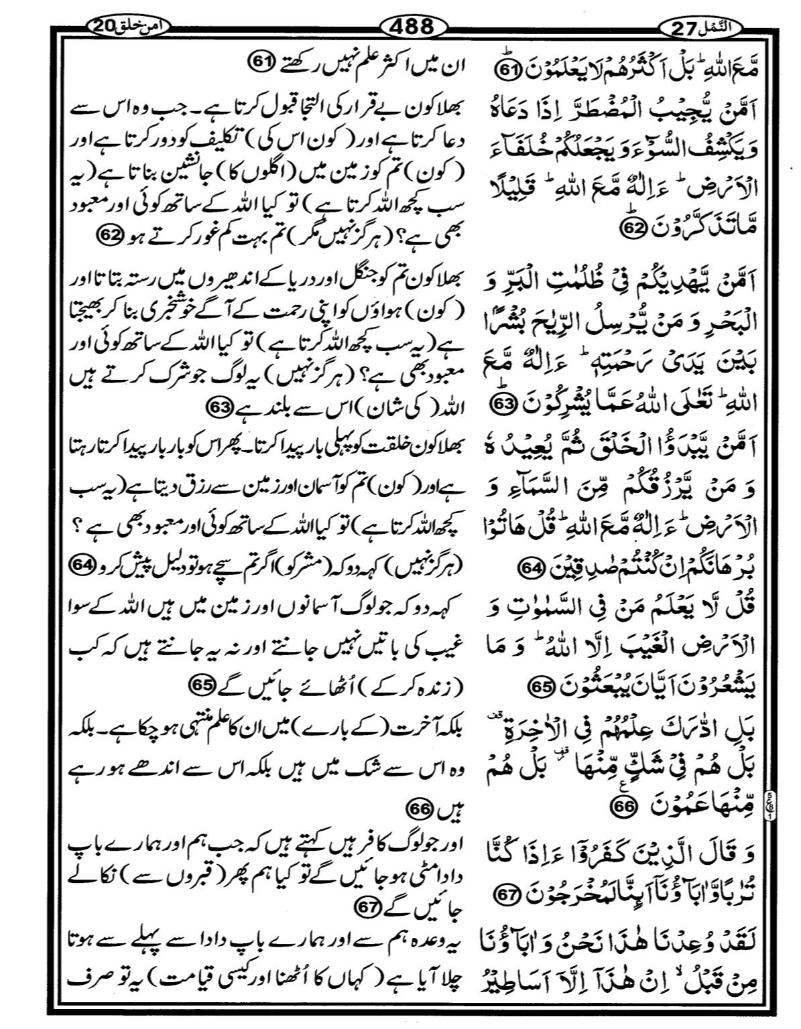 النَّمْل 27
488
امن خلق 20
مَّعَ اللّٰهِ ؕ بَلْ اَكْثَرُهُمْ لَا يَعْلَمُوْنَ ؕ 61
اَمَّنْ يُّجِيْبُ الْمُضْطَرَّ اِذَا دَعَاهُ
وَيَكْشِفُ السُّوْٓءَ وَيَجْعَلُكُمْ خُلَفَآءَ
الْاَرْضِ ؕ ءَاِلٰهٌ مَّعَ اللّٰهِ ؕ قَلِيْلًا
مَّا تَذَكَّرُوْنَ ؕ 62
اَمَّنْ يَّهْدِيْكُمْ فِىْ ظُلُمٰتِ الْبَرِّ وَ
الْبَحْرِ وَ مَنْ يُّرْسِلُ الرِّيٰحَ بُشْرًۢا
بَيْنَ يَدَىْ رَحْمَتِهٖ ؕ ءَاِلٰهٌ مَّعَ
اللّٰهِ ؕ تَعٰلَى اللّٰهُ عَمَّا يُشْرِكُوْنَ ؕ 63
اَمَّنْ يَّبْدَؤُا الْخَلْقَ ثُمَّ يُعِيْدُهٗ
وَ مَنْ يَّرْزُقُكُمْ مِّنَ السَّمَآءِ وَ
الْاَرْضِ ؕ ءَاِلٰهٌ مَّعَ اللّٰهِ ؕ قُلْ هَاتُوْا
بُرْهَانَكُمْ اِنْ كُنْتُمْ صٰدِقِيْنَ 64
قُلْ لَّا يَعْلَمُ مَنْ فِى السَّمٰوٰتِ وَ
الْاَرْضِ الْغَيْبَ اِلَّا اللّٰهُ ؕ وَ مَا
يَشْعُرُوْنَ اَيَّانَ يُبْعَثُوْنَ 65
بَلِ ادّٰرَكَ عِلْمُهُمْ فِى الْاٰخِرَةِ ۛ
بَلْ هُمْ فِىْ شَكٍّ مِّنْهَا ۛ بَلْ هُمْ
مِّنْهَا عَمُوْنَ 66
وَ قَالَ الَّذِيْنَ كَفَرُوْٓا ءَاِذَا كُنَّا
تُرٰبًا وَّاٰبَآؤُنَآ اَىِٕنَّا لَمُخْرَجُوْنَ 67
لَقَدْ وُعِدْنَا هٰذَا نَحْنُ وَ اٰبَآؤُنَا
مِنْ قَبْلُ ۙ اِنْ هٰذَآ اِلَّآ اَسَاطِيْرُ
ان میں اکثر علم نہیں رکھتے 61
بھلا کون بے قرار کی التجا قبول کرتا ہے۔ جب وہ اس سے
دعا کرتا ہے اور (کون اس کی) تکلیف کو دور کرتا ہے اور
(کون) تم کو زمین میں (اگلوں کا) جانشین بناتا ہے (یہ
سب کچھ اللہ کرتا ہے) تو کیا اللہ کے ساتھ کوئی اور معبود
بھی ہے؟ (ہرگز نہیں مگر) تم بہت کم غور کرتے ہو 62
بھلا کون تم کو جنگل اور دریا کے اندھیروں میں رستہ بتاتا اور
(کون) ہواؤں کو اپنی رحمت کے آگے خوشخبری بنا کر بھیجتا
ہے (یہ سب کچھ اللہ کرتا ہے) تو کیا اللہ کے ساتھ کوئی اور
معبود بھی ہے؟ (ہرگز نہیں) یہ لوگ جو شرک کرتے ہیں
اللہ (کی شان) اس سے بلند ہے 63
بھلا کون خلقت کو پہلی بار پیدا کرتا۔ پھر اس کو بار بار پیدا کرتا رہتا
ہے اور (کون) تم کو آسمان اور زمین سے رزق دیتا ہے (یہ سب
کچھ اللہ کرتا ہے) تو کیا اللہ کے ساتھ کوئی اور معبود بھی ہے؟
(ہرگز نہیں) کہہ دو کہ (مشرکو) اگر تم سچے ہو تو دلیل پیش کرو 64
کہہ دو کہ جو لوگ آسمانوں اور زمین میں ہیں اللہ کے سوا
غیب کی باتیں نہیں جانتے اور نہ یہ جانتے ہیں کہ کب
(زندہ کر کے) اُٹھائے جائیں گے 65
بلکہ آخرت (کے بارے) میں ان کا علم منتہی ہو چکا ہے۔ بلکہ
وہ اس سے شک میں ہیں بلکہ اس سے اندھے ہو رہے
ہیں 66
اور جو لوگ کافر ہیں کہتے ہیں کہ جب ہم اور ہمارے باپ
دادا مٹی ہو جائیں گے تو کیا ہم پھر (قبروں سے) نکالے
جائیں گے 67
یہ وعدہ ہم سے اور ہمارے باپ دادا سے پہلے سے ہوتا
چلا آیا ہے (کہاں کا اُٹھنا اور کیسی قیامت) یہ تو صرف